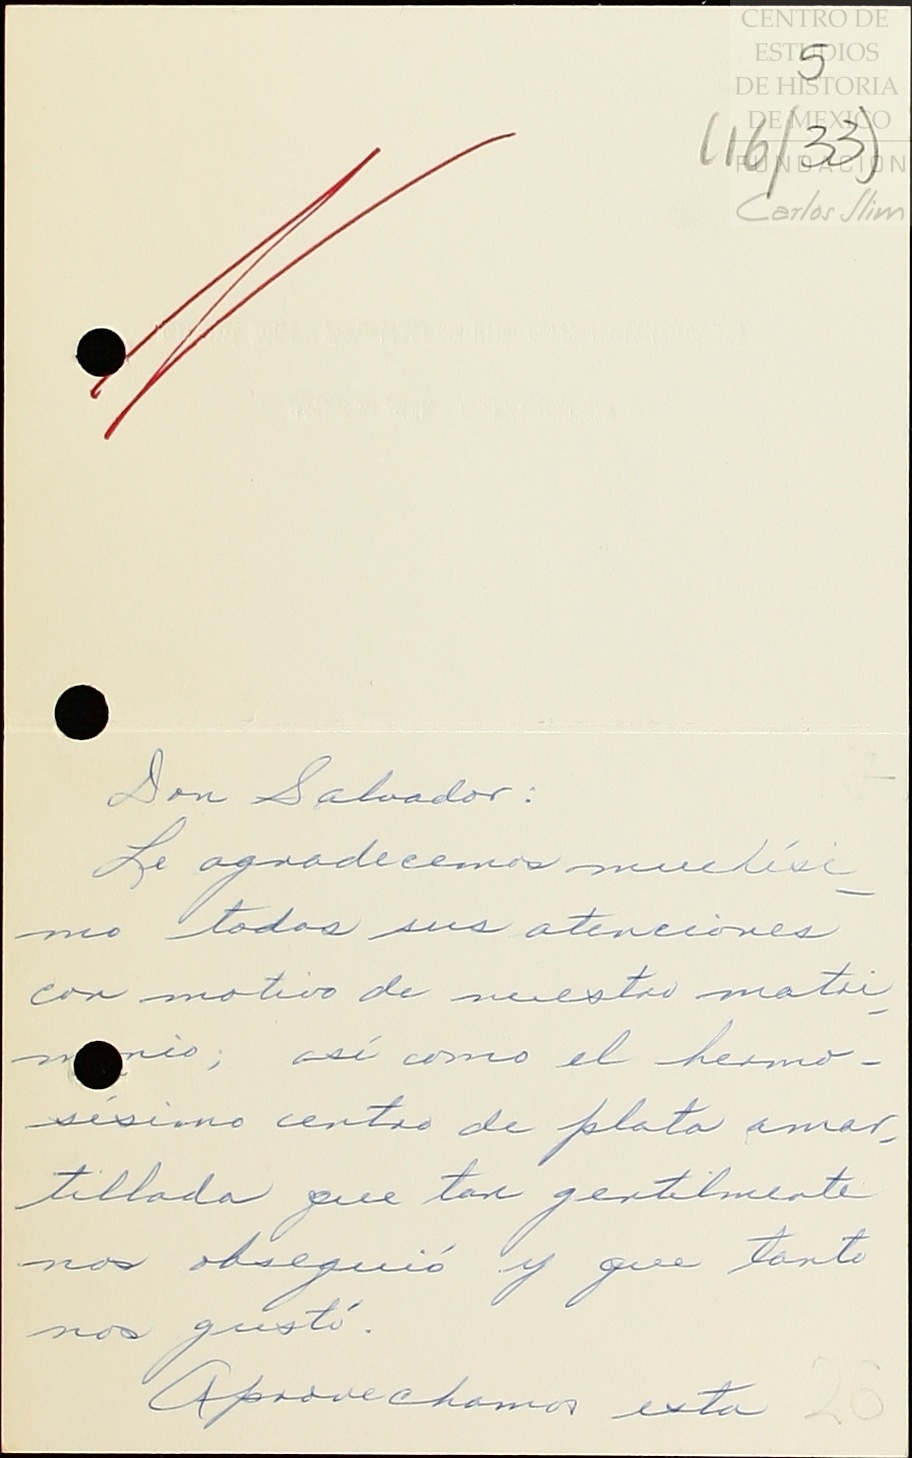 CENTRO DE
ESTUDIOS
DE HISTORIA
DE MEXICO
FUNDACION
Carlos Slim
5
(16/33)
Don Salvador:
Le agradecemos muchísi_
mo todas sus atenciones
con motivo de nuestro matri_
monio; así como el hermo-
sísimo centro de plata amar_
tillada que tan gentilmente
nos obsequió y que tanto
nos gustó.
Aprovechamos esta
26